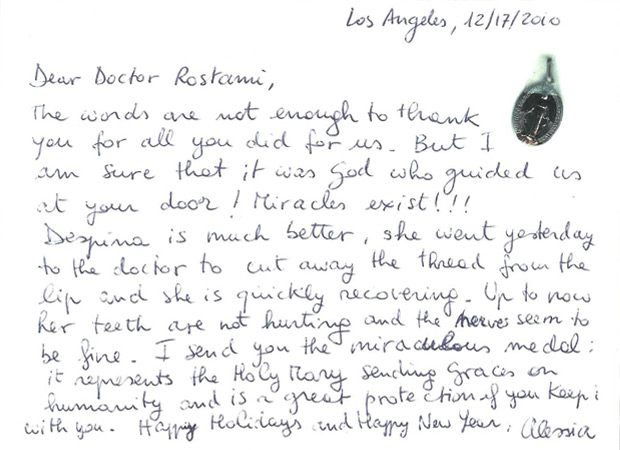 Los Angeles, 12/17/2010
Dear Doctor Rostami,
The words are not enough to thank
you for all you did for us. But I
am sure that it was God who guided us
at your door! Miracles exist!!!
Despina is much better, she went yesterday
to the doctor to cut away the thread from the
lip and she is quickly recovering. Up to now
her teeth are not hurting and the nerves seem to
be fine. I send you the miraculous medal:
it represents the Holy Mary sending Graces on
humanity and is a great protection if you keep i
with you. Happy Holidays and Happy New Year. Alessia